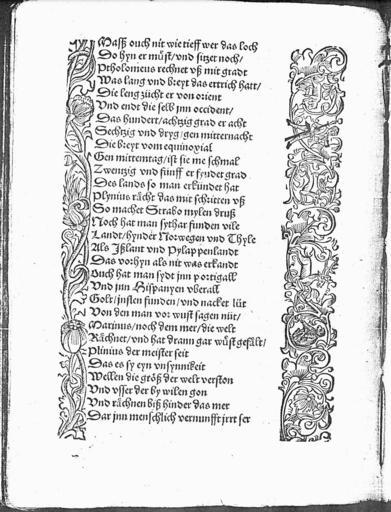 Maſß ouch nit wie tieff wer das loch
Do hyn er müſt/vnd ſitzet noch/
Ptholomeus rechnet vß mit gradt
Was lang vnd breyt das ertrich hatt/
Die leng zücht er von orient
Vnd endt die ſelb jnn occident/
Das hundert/achtzig grad er acht
Sechtzig vnd dryg/gen mitternacht
Die breyt vom equinoxial
Gen mittemtag/iſt ſie me ſchmal
Zwentzig vnd fünff er fyndet grad
Des lands ſo man erkündet hat
Plynius rächt das mit ſchritten vß
So machet Strabo mylen druß
Noch hat man ſythar funden vile
Landt/hynder Norwegen vnd Thyle
Als Jßlant vnd Pylappenlandt
Das vorhyn als nit was erkandt
Ouch hat man ſydt jnn portigall
Vnd jnn Hiſpanyen vberall
Golt/jnſlen funden/vnd nacket lüt
Von den man vor wuſt ſagen nüt/
Marinus/noch dem mer/die welt
Rächnet/vnd hat drann gar wüſt gefält/
Plinius der meiſter ſeit
Das es ſy eyn vnſynnikeit
Wellen die größ der welt verſton
Vnd vſſer der by wilen gon
Vnd rächnen biß hinder das mer
Dar jnn menſchlich vernunfft jrrt ſer